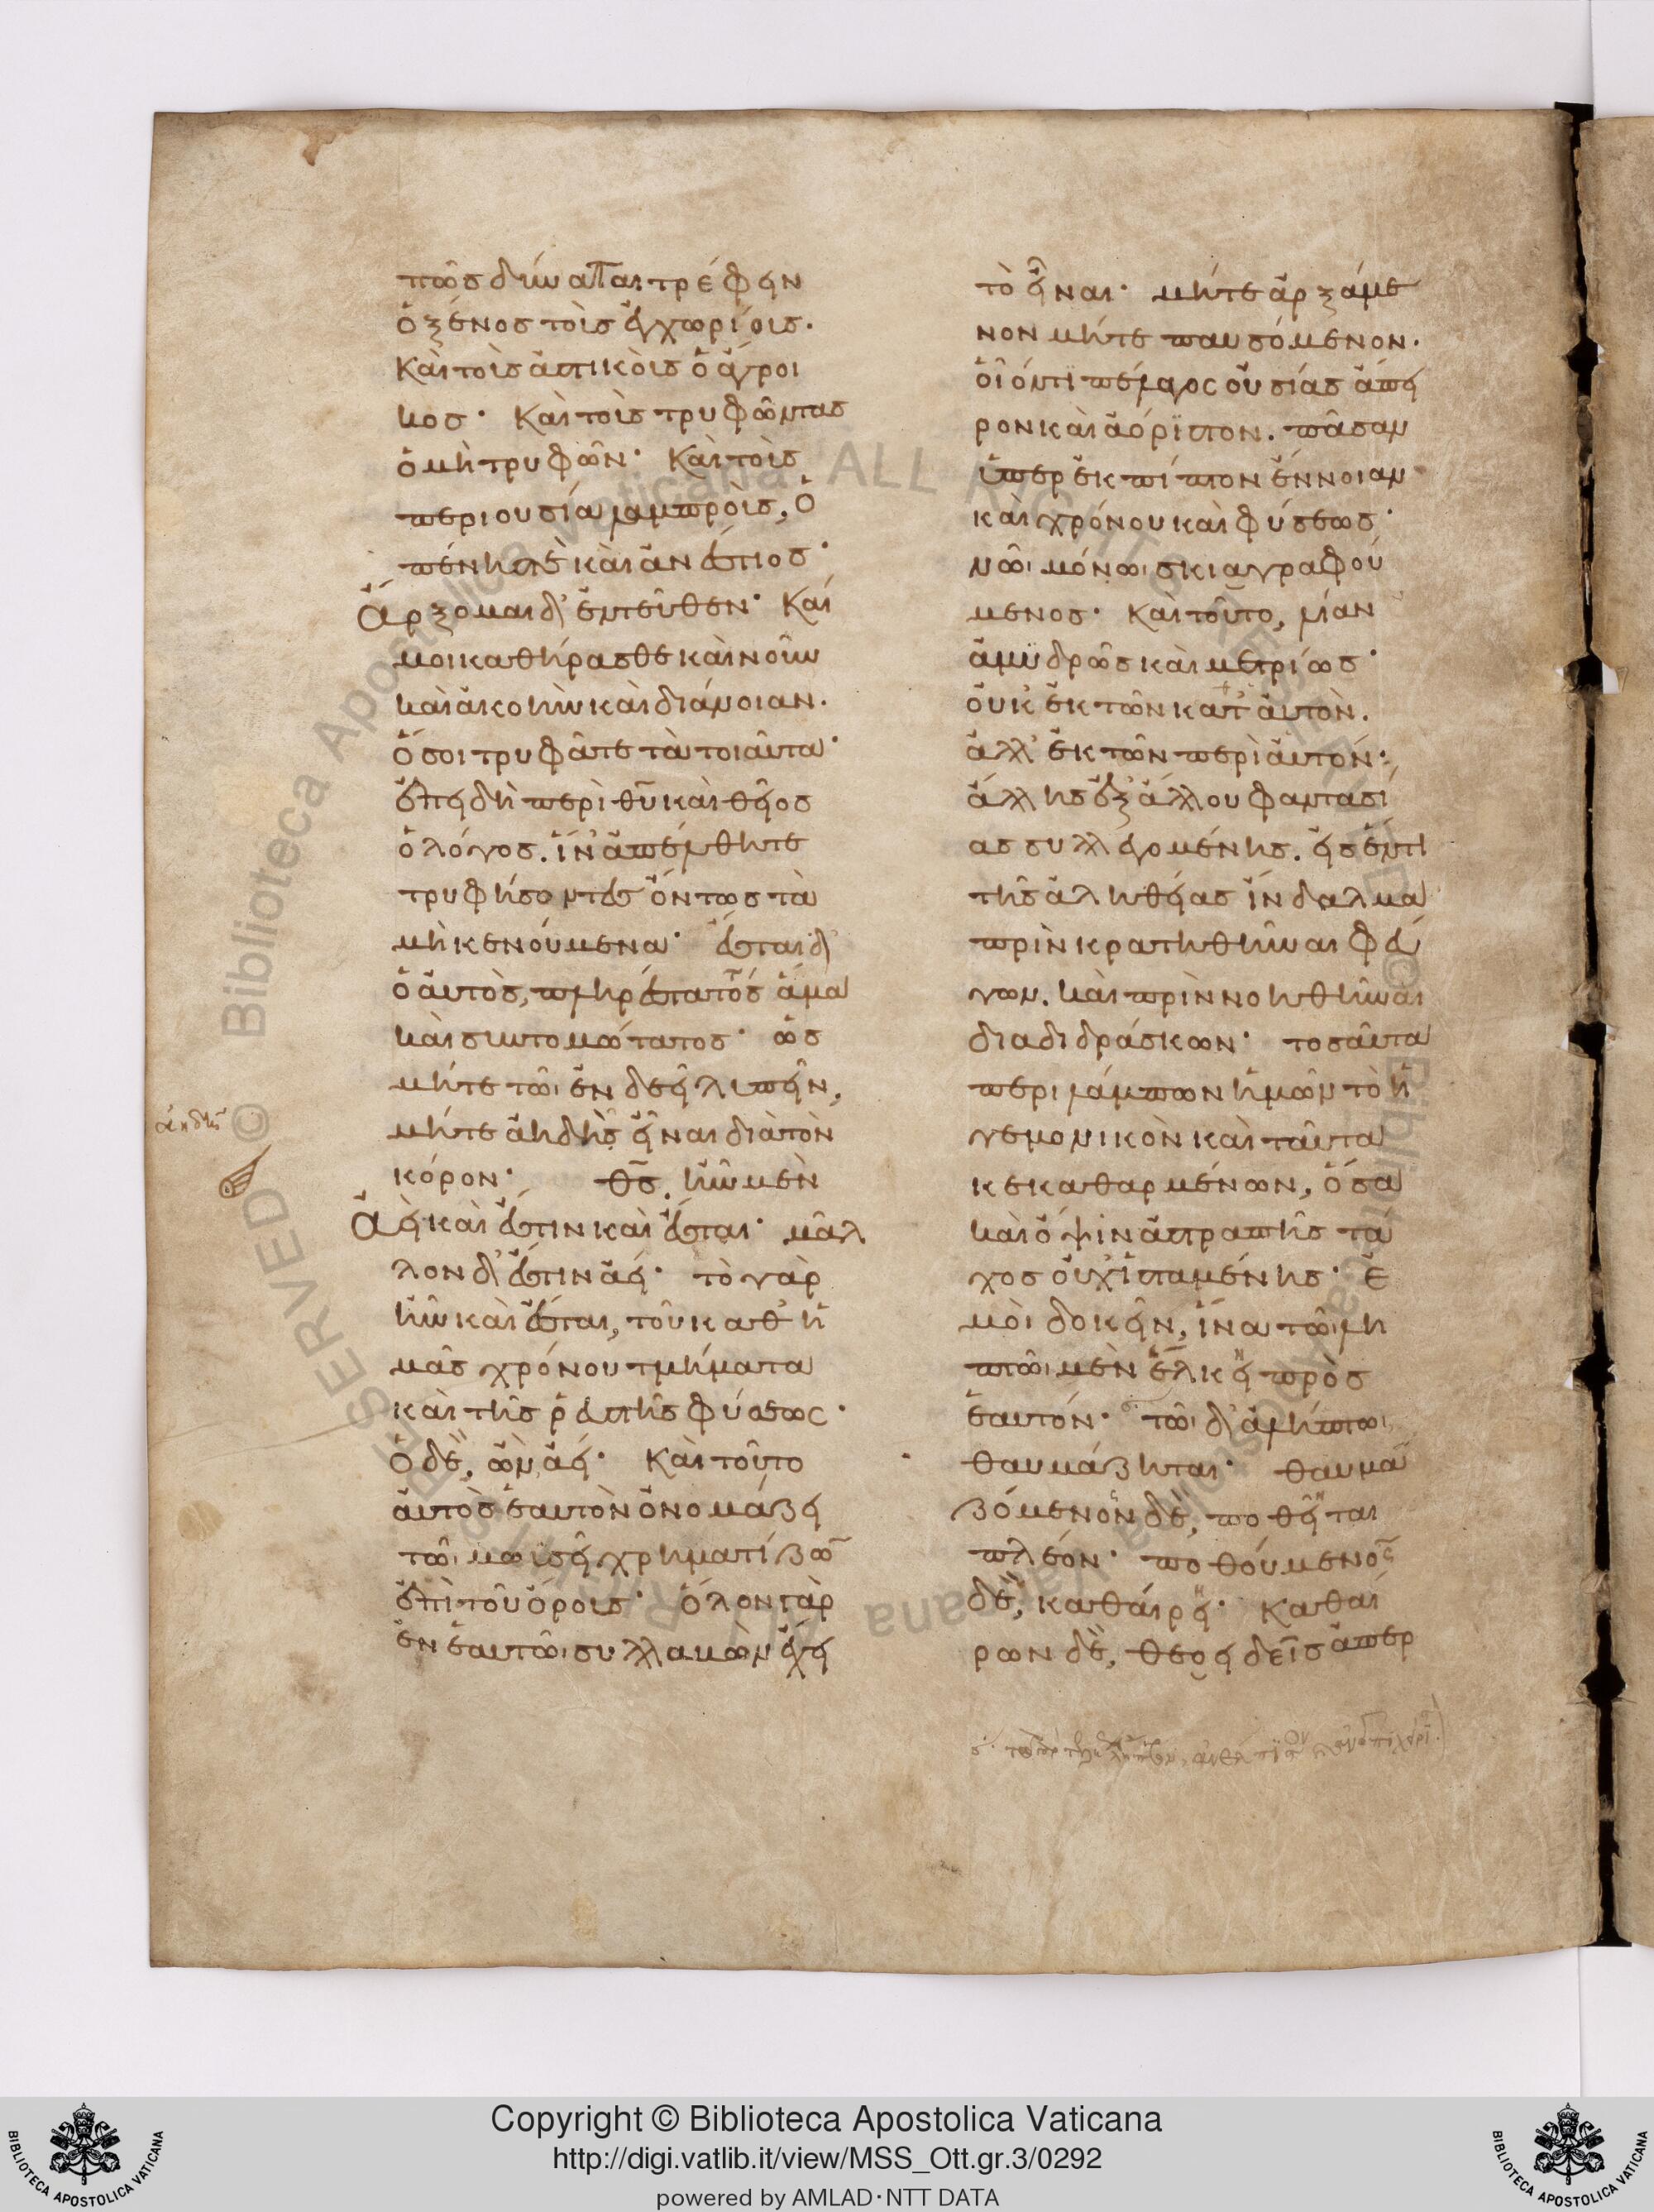 πῶς δύναται τρέφειν
ὁ ξένος τοὺς ἐγχωρίους.
Καὶ τοὺς ἀστικοὺς ὁ ἄγροι
κος· Καὶ τοὺς τρυφῶντας
ὁ μὴ τρυφῶν· Καὶ τοὺς
περιουσία λαμπροὺς, ὁ
πένης τὲ καὶ ἀνέστιος·
Ἄρξομαι δ' ἐντεῦθεν· Καί
μοι καθήρασθε καὶ νοῦν
καὶ ἀκοὴν καὶ διάνοιαν.
Ὅσοι τρυφᾶτε τὰ τοιαῦτα·
ἐπειδὴ περὶ θῦ καὶ θεῖος
ὁ λόγος. ἵν' ἀπέλθητε
τρυφήσοντες ὄντως τὰ
μὴ κενούμενα· ἔσται δ'
ὁ αὐτὸς, πληρέστατός ἅμα
καὶ συντομώτατος· ὡς
μήτε τῶι ἐνδεεῖ λυπεῖν,
μήτε ἀηδὴς εἶναι διὰ τὸν
κόρον· θς, ἦν μὲν
Ἀεὶ καὶ ἔστιν καὶ ἔσται· μᾶλ
λον δ' ἔστιν ἀεί· τὸ γὰρ
ἦν καὶ ἔσται, τοῦ καθ' ἡ
μᾶς χρόνου τμήματα
καὶ τῆς ῥευστῆς φύσεως·
Ὁ δὲ, ὢν ἀεί· Καὶ τοῦτο
αὐτὸς ἑαυτὸν ὀνομάζει
τῶι μωϋσεῖ χρηματίζων
ἐπὶ τοῦ ὄρους· ὅλον γὰρ
ἐν ἑαυτῶι συλλαβὼν ἔχει
τὸ εἶναι· μήτε ἀρξάμε
νον μήτε παυσόμενον.
οἷόν τι πέλαγος οὐσίας ἄπει
ρον καὶ ἀόριστον. πᾶσαν
ὑπερεκπίπτον ἔννοιαν
καὶ χρόνου καὶ φύσεως·
νῶι μόνωι σκιαγραφού
μενος· Καὶ τοῦτο, λίαν
ἀμυδρῶς καὶ μετρίως·
οὐκ ἐκ τῶν κατ' αὐτὸν.
ἀλλ' ἐκ τῶν περὶ αὐτόν·
ἄλλης ἐξ ἄλλου φαντασί
ας συλλεγομένης. εἰς ἕν τι
τῆς ἀληθείας ἴνδαλμα
πρὶν κρατηθῆναι φεῦ
γων. καὶ πρὶν νοηθῆναι
διαδιδράσκων· τοσαῦτα
περιλάμπων ἡμῶν τὸ ἡ
γεμονικὸν καὶ ταῦτα
κεκαθαρμένων, ὅσα
καὶ ὄψιν ἀστραπῆς τά
χος οὐχ ἱσταμένης· Ἐ
μοὶ δοκεῖν, ἵνα τῶι λη
πτῶι μὲν ἕλκει πρὸς
ἑαυτόν· τῶι δ' ἀλήπτωι
θαυμάζηται· θαυμα
ζόμενον δὲ, ποθεῖται
πλέον· ποθούμενος
δὲ, καθαίρει· Καθαί
ρων δὲ, θεοειδεῖς ἅπερ
Copyright © Biblioteca Apostolica Vaticana
http://digi.vatlib.it/view/MSS_Ott.gr.3/0292
powered by AMLAD·NTT DATA
BIBLIOTECA APOSTOLICA VATICANA
BIBLIOTECA APOSTOLICA VATICANA